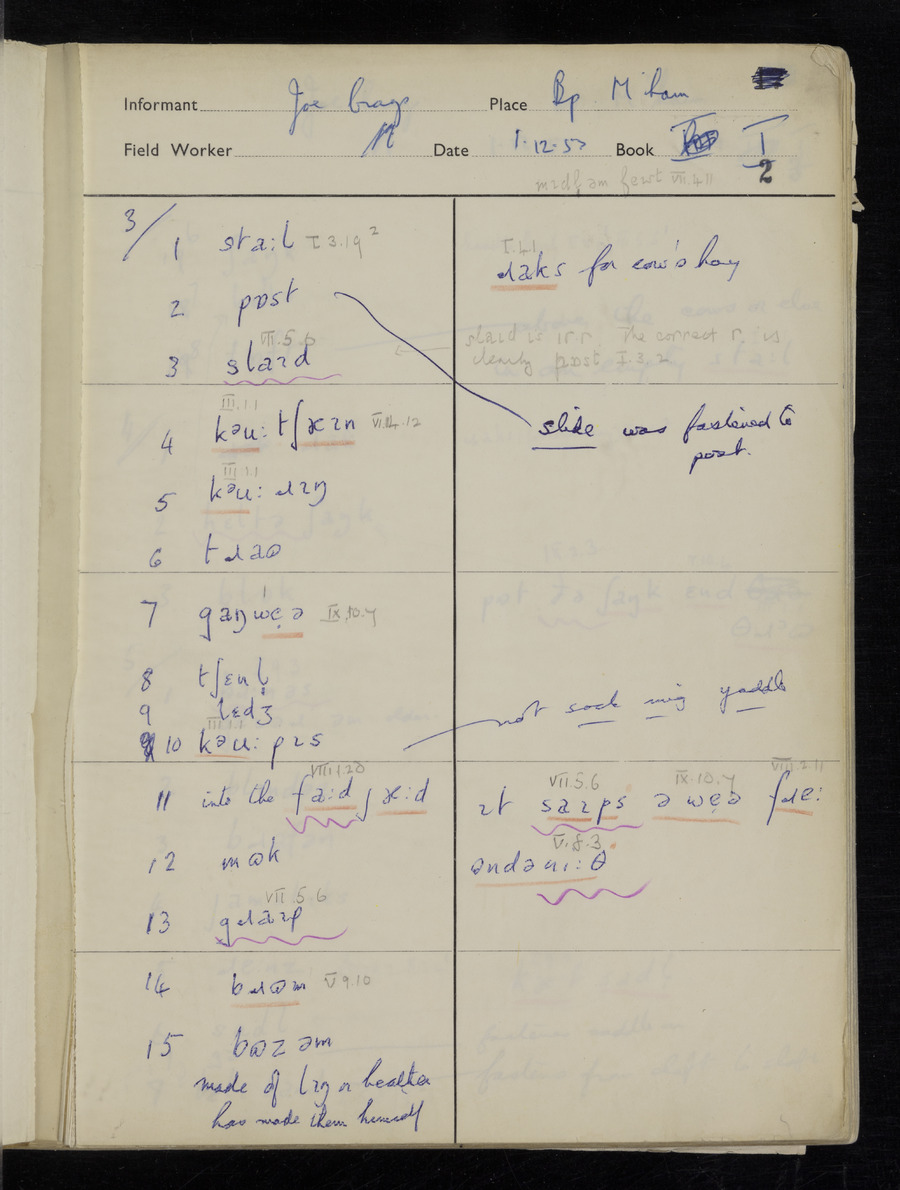 Informant Joe Place Bp. M'ham
Field Worker Date 1.12.53 Book I
2
VII.4.11
3/
1 sta:l I 3.19
I.4.1
ɹaks for cow's hay
2 pɒst
VII.5.6
3 slaɪd
slaɪd is irr. The correct r. is
clearly pɒst I.3.2
III.1.1
4 kəu: tʃæɪn
slide was fastened to
post.
III.1.1
5 kəu: ɹɪŋ
6 tɹaɒ
7 gaŋwɛə IX.10.7
8 tʃɛnl̩
9 lɛdʒ
10 kəu: pɪs
not sock mig yaddle
VIII.1.20
11 into the fa:dʒæ:d
VII.5.6 IX.10.7 VIII.2.11
ɪt saɪps əwɛə fɹɛ:
V.8.3
əndəni:θ
12 mɒk
VII.5.6
13 gɹaɪp
14 bɹɷm V 9.10
15 bɷzəm
made of lɪŋ or heather
has made them himself